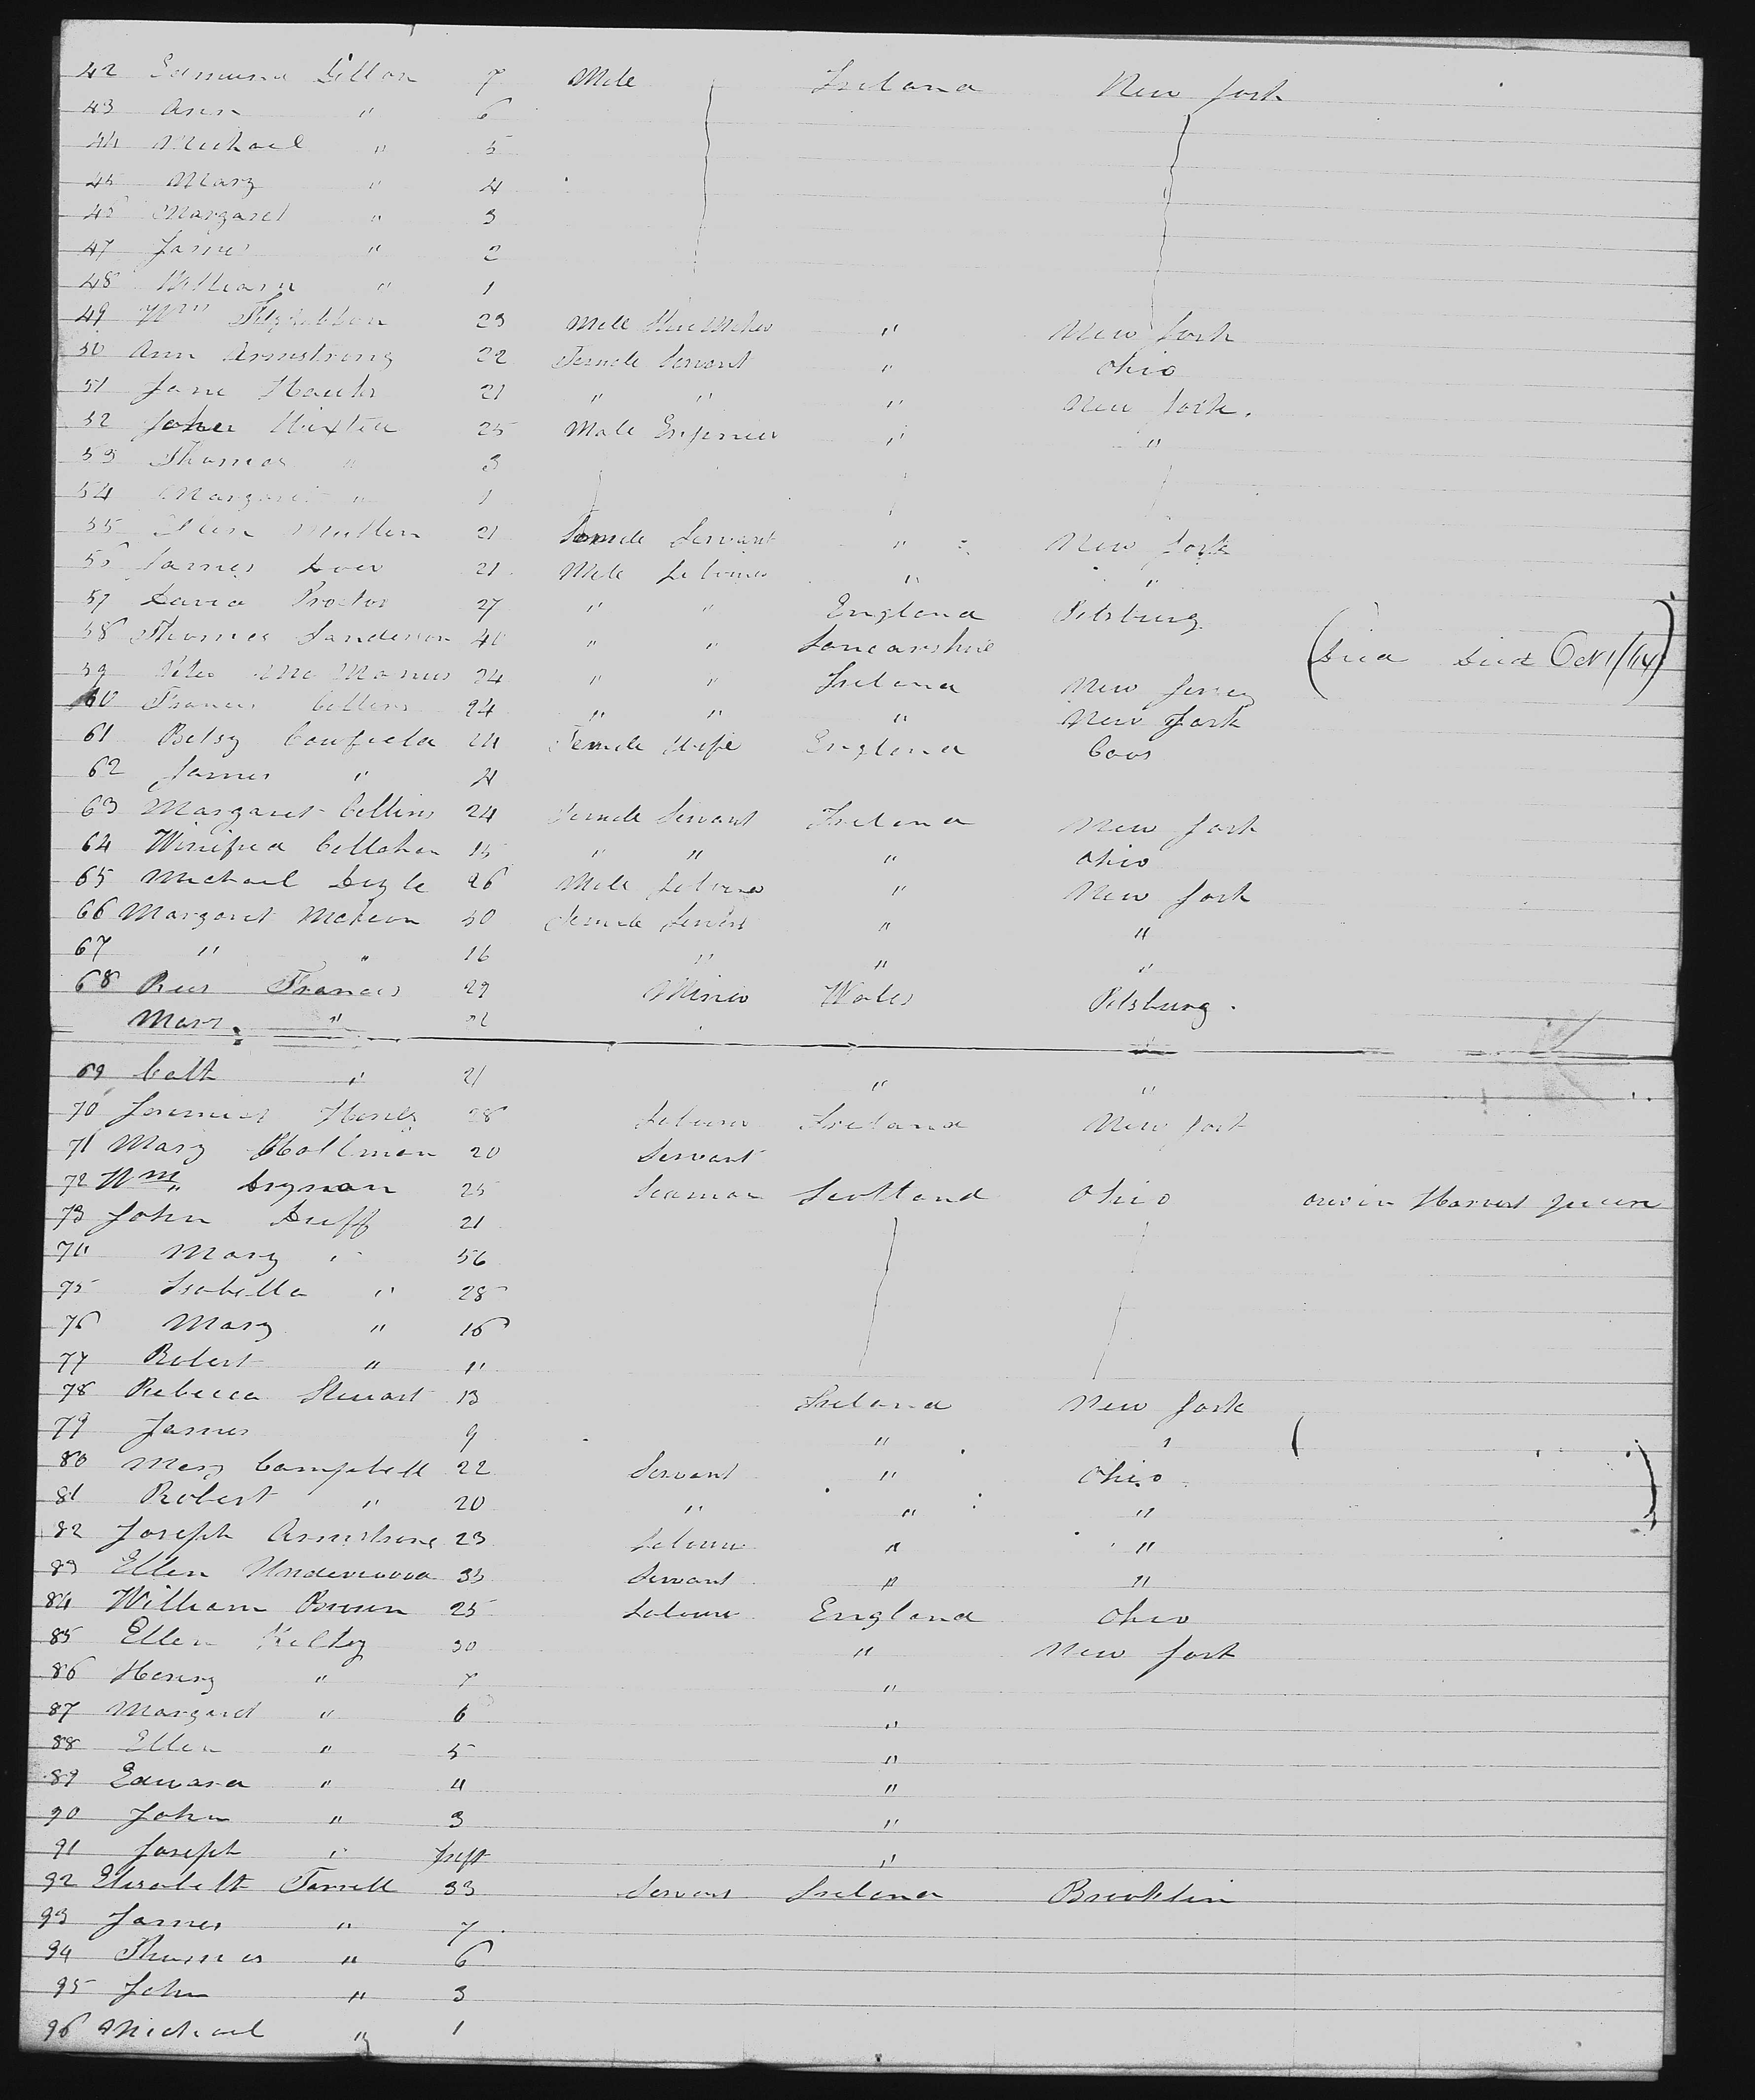 42 Edmund Dillon 7 Male Ireland New York
43 Ann " 6
44 Michael " 5
45 Mary " 4 "
46 Margaret " 3
47 James " 2
48 William " 1
49 Wm Fitzgibbon 23 Male Shoe Maker " New York
50 Ann Armstrong 22 Female Servant " Ohio
51 Jane 21 " " " New York.
52 25 Male Engineer " "
53 Thomas " 3
54 Margaret " 1
55 Mullen 21 Female Servant " New York
56 James 21 Male Labourer " "
57 David Proctor 27 " " England Pitsburg
58 Thomas Sanderson 40 " " Lancashire (Died Died Oct 1/64)
59 Peter Mc Manus 24 " " Ireland New Jersey
60 Francis Collins 24 " " " New York
61 Betsy Caufield 24 Female Wife England Coos
62 James " 4
63 Margaret Collins 24 Female Servant Ireland New York
64 Winifred Callahan 15 " " " Ohio
65 Michael Doyle 26 Male Labourer " New York
66 Margaret McKeon 50 Female Servant " "
67 " " 16 " " "
68 Rees Francis 29 Miner Wales Pitsburg.
Mary "
69 Cath " 21 " "
70 Jeremiah 28 Labourer Ireland New York
71 Mary 20 Servant
72 Wm " 25 Seaman Scotland Ohio Harvest Queen
73 John Duff 21
74 Mary " 56
75 Isabella " 28
76 Mary " 16
77 Robert " 11
78 Rebecca Stewart 13 Ireland New York
79 James 9 " "
80 Mary Campbell 22 Servant " Ohio
81 Robert " 20 " " "
82 Joseph Armstrong 23 Labourer " "
83 Ellen Underwood 33 Servant " "
84 William Brown 25 Labourer England Ohio
85 Ellen 30 " New York
86 Henry " 7 "
87 Margaret " 6 "
88 Ellen " 5 "
89 Edward " 4 "
90 John " 3 "
91 Joseph " Inft "
92 Elizabeth Farrell 33 Servant Ireland Brooklin
93 James " 7
94 Thomas " 6
95 John " 3
96 Michael " 1